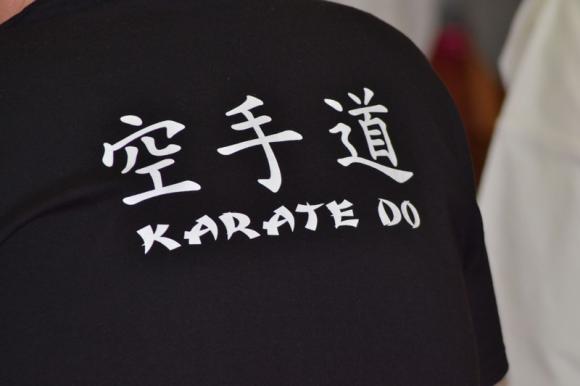 空手道
KARATE DO